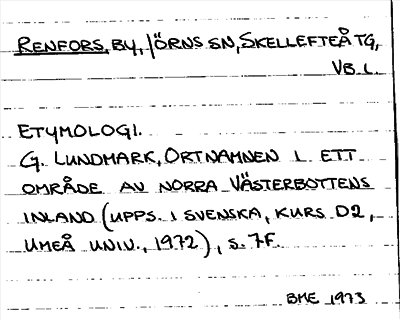 RENFORS, BY, JÖRNS SN, SKELLEFTEÅ TG,
VB L.
ETYMOLOGI.
G. LUNDMARK, ORTNAMNEN I ETT
OMRÅDE AV NORRA VÄSTERBOTTENS
INLAND (UPPS. I SVENSKA, KURS D2,
UMEÅ UNIV., 1972), S. 7F.
BME 1973